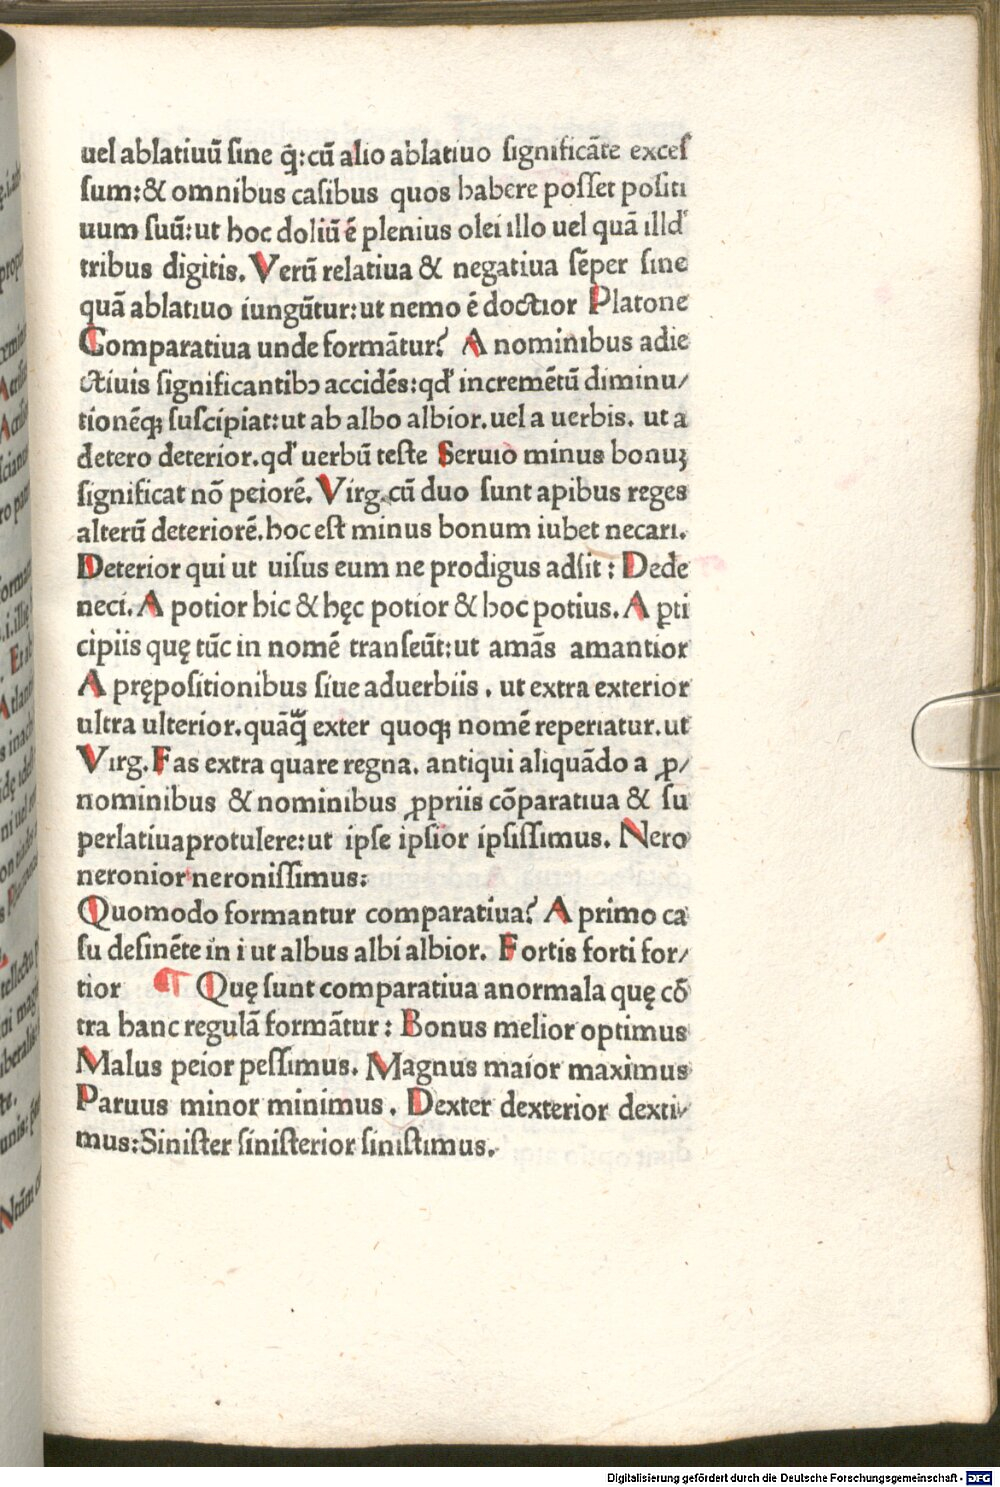 uel ablatiuū ſine q̄:cū alio ablatiuo ſignificāte exceſ
ſum:& omnibus caſibus quos habere poſſet poſiti
uum ſuū:ut hoc doliū ē plenius olei illo uel quā illd'
tribus digitis. Verū relatiua & negatiua ſēper ſine
quā ablatiuo iungūtur:ut nemo ē doctior Platone
Comparatiua unde formātur? A nominibus adie
ctiuis ſignificantibɔ accidēs:qd' incremētū diminu/
tionēqꝫ ſuſcipiat:ut ab albo albior.uel a uerbis. ut a
detero deterior.qd' uerbū teſte Seruio minus bonuꝫ
ſignificat nō peiorē. Virg.cū duo ſunt apibus reges
alterū deteriorē.hoc eſt minus bonum iubet necari.
Deterior qui ut uiſus eum ne prodigus adſit: Dede
neci. A potior hic & hęc potior & hoc potius. A ꝑti
cipiis quę tūc in nomē tranſeūt:ut amās amantior
A prępoſitionibus ſiue aduerbiis . ut extra exterior
ultra ulterior.quāq̄̃ exter quoqꝫ nomē reperiatur.ut
Virg. Fas extra quare regna. antiqui aliquādo a ꝓ/
nominibus & nominibus ꝓpriis cōparatiua & ſu
perlatiua protulere:ut ipſe ipſior ipſiſſimus. Nero
neronior neroniſſimus:
Quomodo formantur comparatiua? A primo ca
ſu deſinēte in i ut albus albi albior. Fortis forti for/
tior ¶ Quę ſunt comparatiua anormala quę cō
tra hanc regulā formātur: Bonus melior optimus
Malus peior peſſimus. Magnus maior maximus
Paruus minor minimus . Dexter dexterior dexti/
mus:Siniſter ſiniſterior ſiniſtimus.
Digitalisierung gefördert durch die Deutsche Forschungsgemeinschaft - DFG